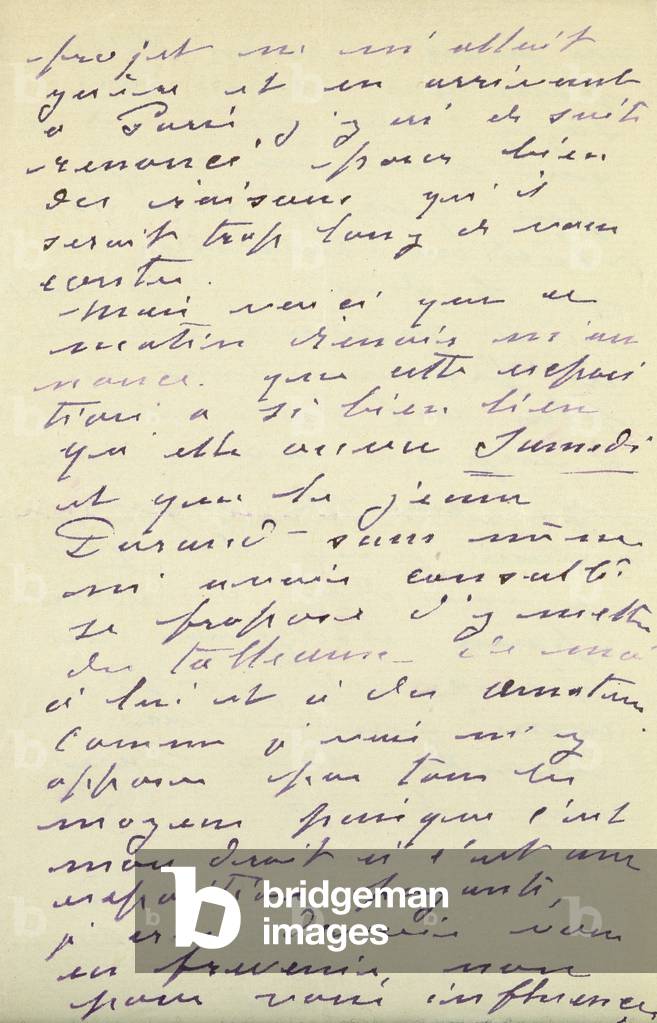 projet ne m'allait
guère et en arrivant
a Paris j'y ai de suite
renoncé, pour bien
des raisons qu'il
serait trop long de vous
conter.
Mais voici que ce
matin Renoir m'an
nonce. que cette exposi
tion a si bien lieu
qu'elle ouvre Samedi
et que le jeune
Durand - sans même
m'avoir consulté
se propose d'y mettre
des tableaux de moi
à lui et à des amateurs.
Comme j'vais m'y
opposer par tous les
moyens puisque c'est
mon droit si c'est une
exposition payante,
j' devoir vous
en prevenir, non
pour vous influencer
bridgeman
images